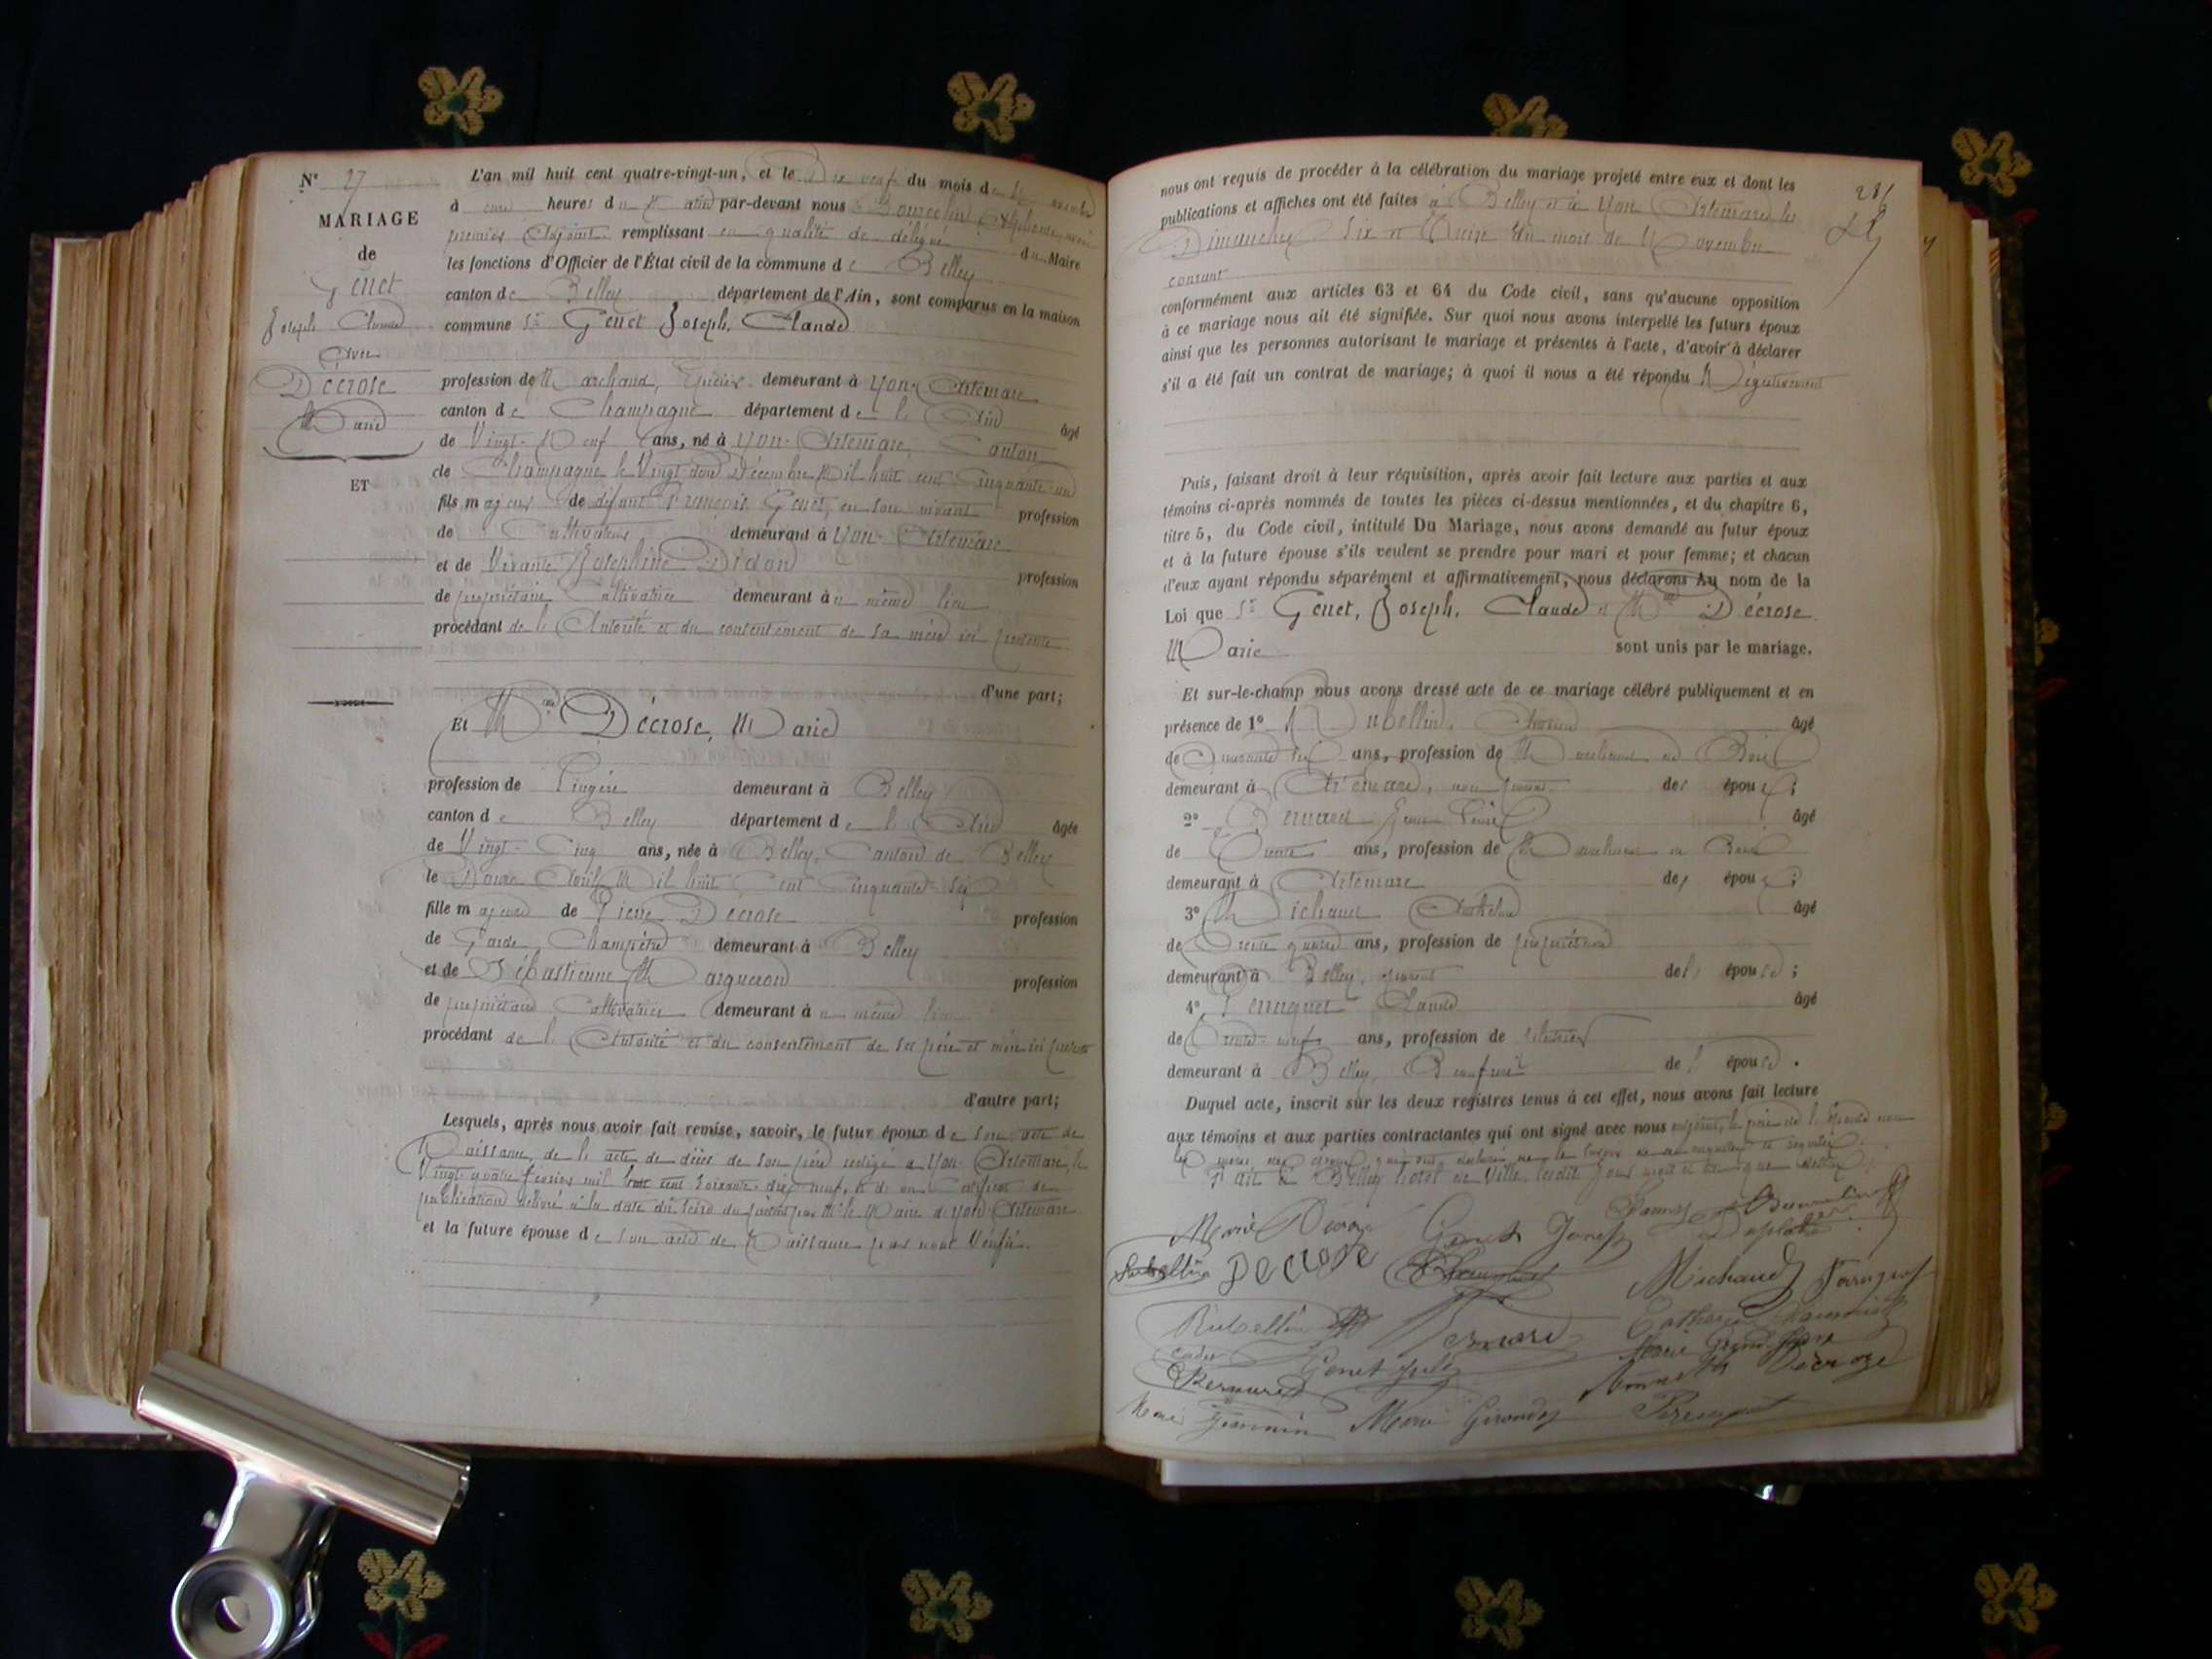 N° 27
MARIAGE
de
Genet
Joseph Claude
Avec
Décrose
Marie
ET
L'an mil huit cent quatre-vingt-un, et le Dix neuf du mois de Novembre
à heures du Matin par-devant nous
premier Adjoint remplissant en qualité de délégué du Maire
les fonctions d'Officier de l'État civil de la commune de Belley
canton de Belley département de l'Ain, sont comparus en la maison
commune Sr Genet Joseph, Claude
profession de Marchand, Epicier demeurant à Yon-Artemare
canton de Champagne département de l'Ain âgé
de Vingt-Neuf ans, né à Yon-Artemare, Canton
de Champagne le Vingt Décembre Mil huit cent Cinquante un
fils majeur de défunt François Genet, en son vivant profession
de Cultivateur demeurant à Yon-Artemare
et de Vivante Joséphine Didon profession
de propriétaire Cultivatrice demeurant au même lieu
procédant de l'Autorité et du consentement de sa mère ici présente
d'une part;
Et Melle Décrose, Marie
profession de Lingère demeurant à Belley
canton de Belley département de l'Ain âgée
de Vingt-Cinq ans, née à Belley, Canton de Belley
le Douze Avril Mil huit Cent Cinquante-Six
fille majeure de Pierre Décrose profession
de Garde Champêtre demeurant à Belley
et de Sébastienne Margueron profession
de propriétaire Cultivatrice demeurant au même lieu
procédant de l'Autorité et du consentement de ses père et mère ici présents
d'autre part;
Lesquels, après nous avoir fait remise, savoir, le futur époux de son acte de
Naissance, de l'acte de décès de son père rédigé à Yon-Artemare, le
Vingt quatre février mil huit cent soixante-dix neuf, et d'un Certificat de
publication délivré à la date du par Mr le Maire d'Yon-Artemare
et la future épouse de son acte de Naissance par nous Vérifié.
281
nous ont requis de procéder à la célébration du mariage projeté entre eux et dont les
publications et affiches ont été faites à Belley et à Yon-Artemare, les
Dimanches Six et Treize du mois de Novembre
courant
conformément aux articles 63 et 64 du Code civil, sans qu'aucune opposition
à ce mariage nous ait été signifiée. Sur quoi nous avons interpellé les futurs époux
ainsi que les personnes autorisant le mariage et présentes à l'acte, d'avoir à déclarer
s'il a été fait un contrat de mariage; à quoi il nous a été répondu Négativement
Puis, faisant droit à leur réquisition, après avoir fait lecture aux parties et aux
témoins ci-après nommés de toutes les pièces ci-dessus mentionnées, et du chapitre 6,
titre 5, du Code civil, intitulé Du Mariage, nous avons demandé au futur époux
et à la future épouse s'ils veulent se prendre pour mari et pour femme; et chacun
d'eux ayant répondu séparément et affirmativement, nous déclarons Au nom de la
Loi que Sr Genet, Joseph, Claude et Melle Décrose
Marie sont unis par le mariage.
Et sur-le-champ nous avons dressé acte de ce mariage célébré publiquement et en
présence de 1° Rubellin, âgé
de ans, profession de Marchand de Bois
demeurant à Artemare, non parent de l'époux;
2° Bernard Jean âgé
de Trente ans, profession de Marchand de Bois
demeurant à Artemare de l'époux;
3° Michaud Anthelme âgé
de Trente quatre ans, profession de propriétaire
demeurant à Belley, de l'épouse;
4° Claude âgé
de Trente-neuf ans, profession de
demeurant à Belley, de l'épouse.
Duquel acte, inscrit sur les deux registres tenus à cet effet, nous avons fait lecture
aux témoins et aux parties contractantes qui ont signé avec nous
Fait à Belley hôtel de Ville, lesdit jour mois et an que dessus
Genet Joseph
Rubellin Decrose
Michaud
Rubellin Bernard
cadet Genet
Bernard
Marie Jeannin Marie